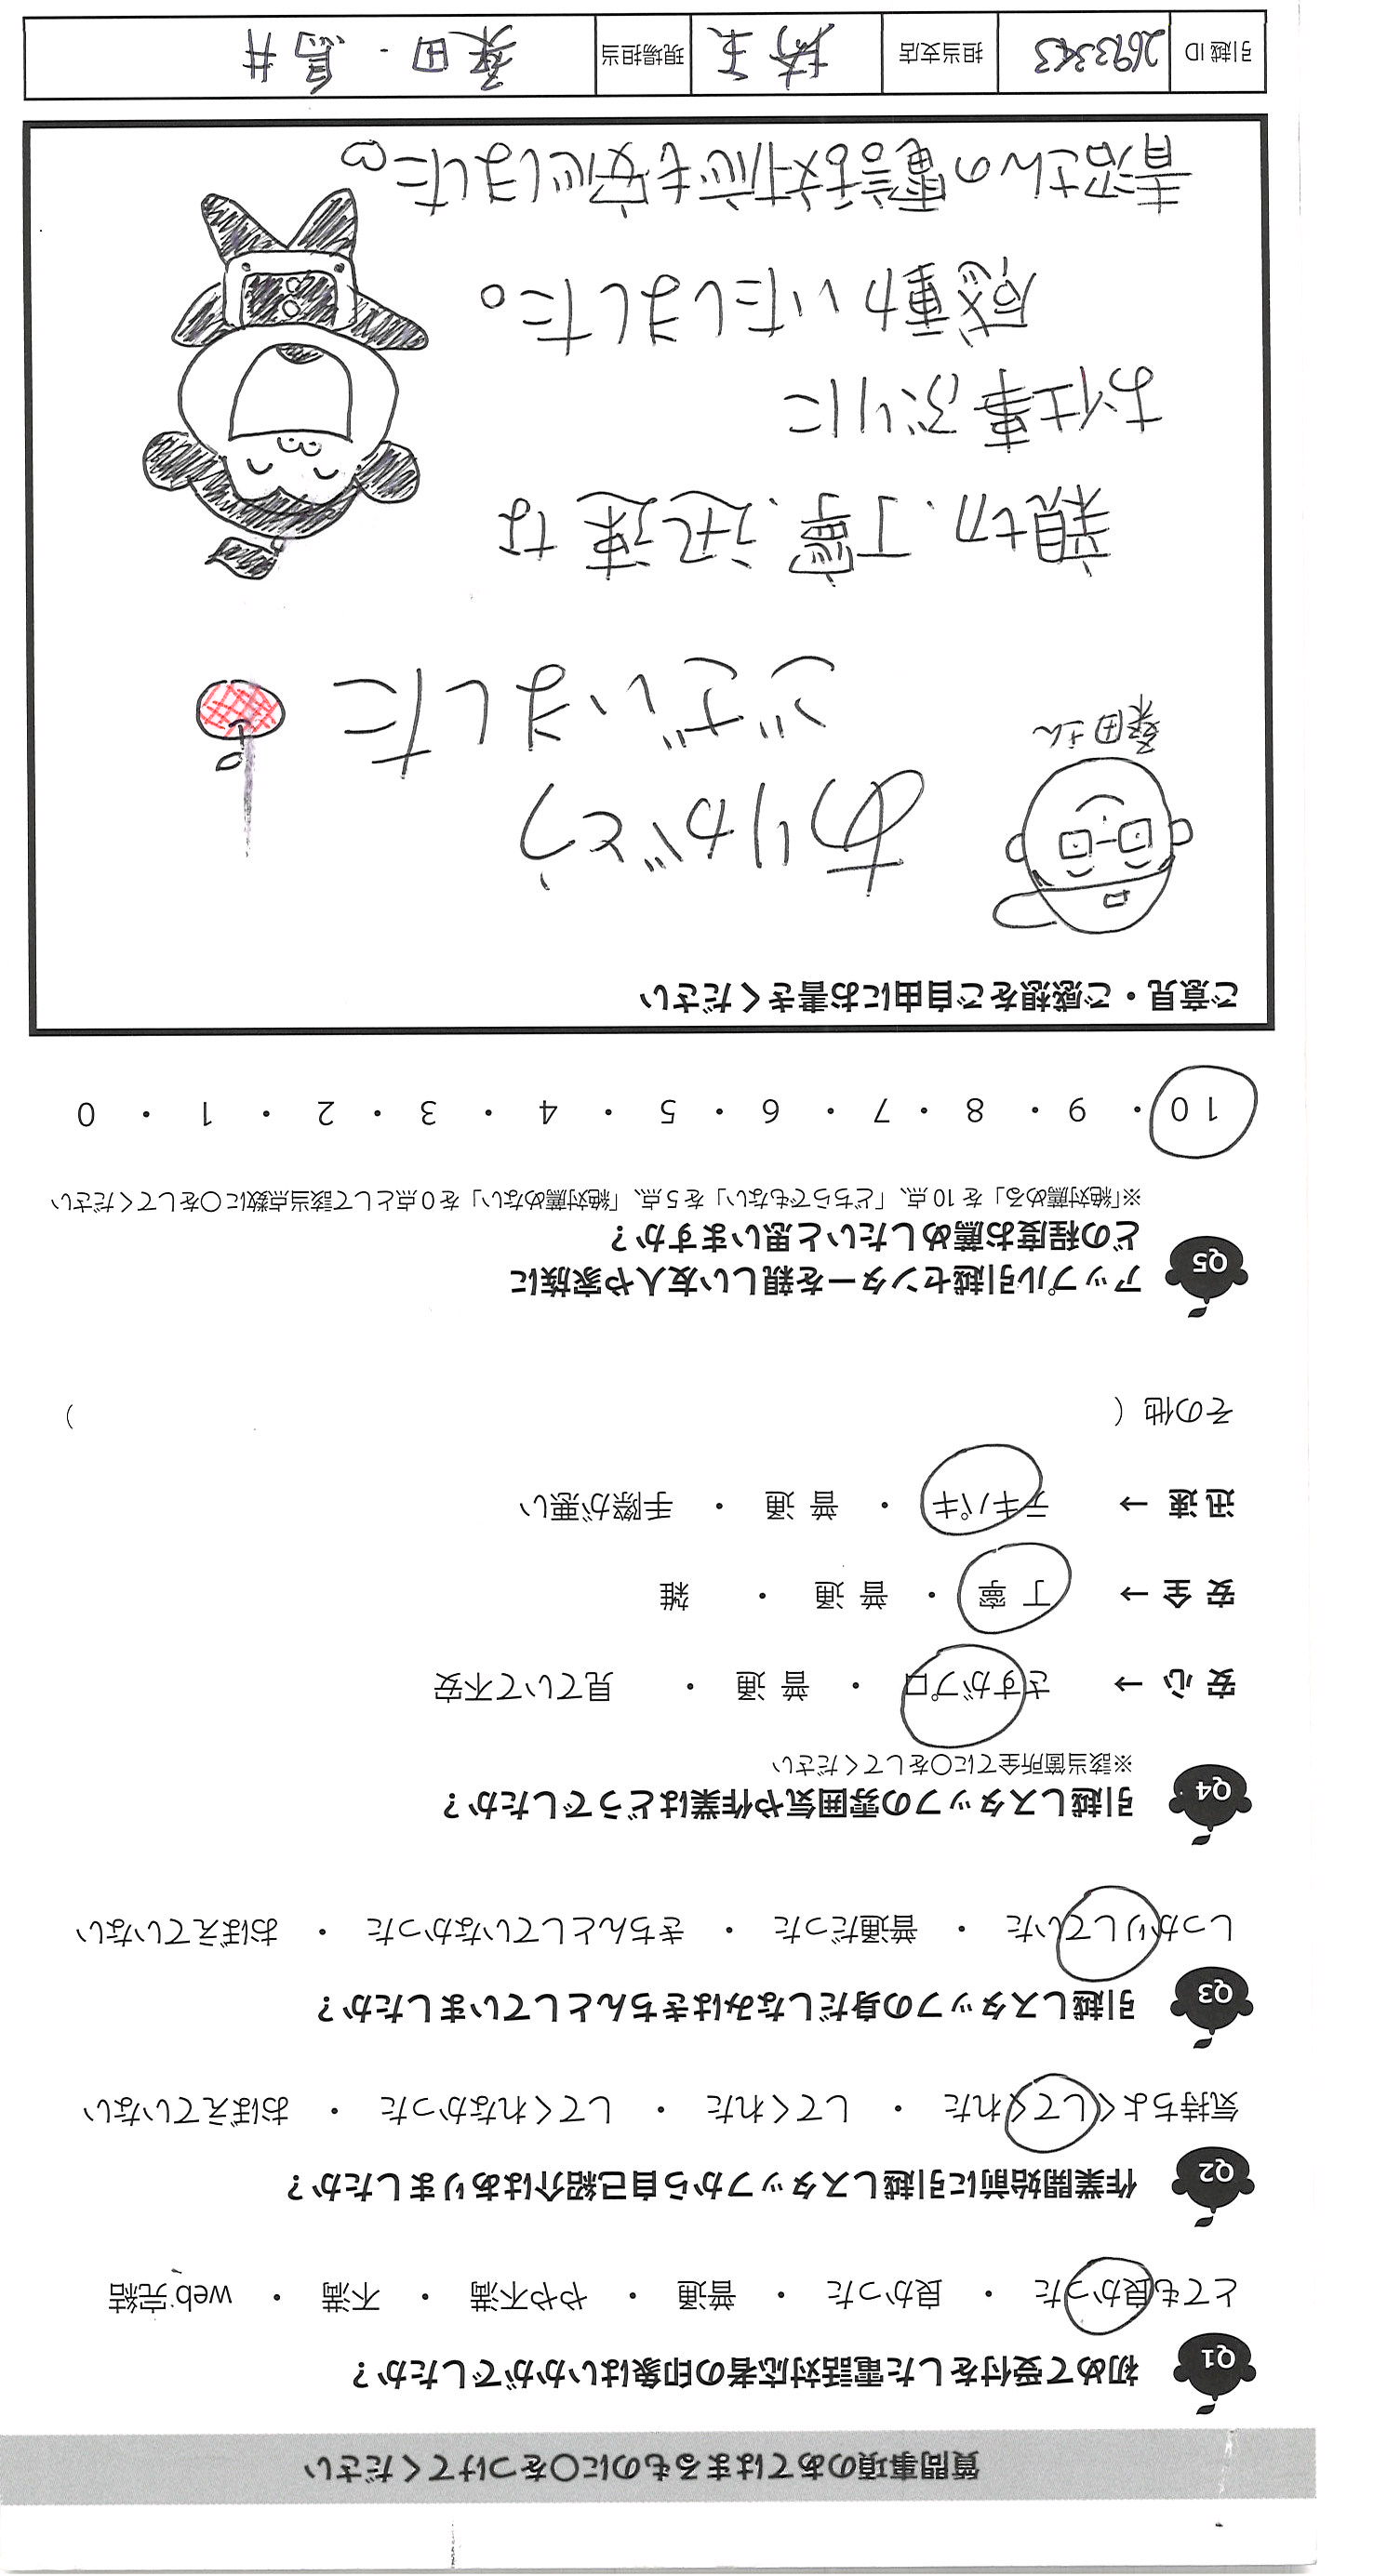 質問事項のあてはまるものに〇をつけてください
Q1 初めて受付をした電話対応者の印象はいかがでしたか？
とても良かった ・ 良かった ・ 普通 ・ やや不満 ・ 不満 ・ web完結
Q2 作業開始前に引越しスタッフから自己紹介はありましたか？
気持ちよくしてくれた ・ してくれた ・ してくれなかった ・ おぼえていない
Q3 引越しスタッフの身だしなみはきちんとしていましたか？
しっかりしていた ・ 普通だった ・ きちんとしていなかった ・ おぼえていない
Q4 引越しスタッフの雰囲気や作業はどうでしたか？
※該当箇所全てに〇をしてください
安心→ さすがプロ ・ 普通 ・ 見ていて不安
安全→ 丁寧 ・ 普通 ・ 雑
迅速→ テキパキ ・ 普通 ・ 手際が悪い
その他（ ）
Q5 アップル引越センターを親しい友人や家族に
どの程度お薦めしたいと思いますか？
※「絶対薦める」を10点、「どちらでもない」を5点、「絶対薦めない」を0点として該当点数に〇をしてください
10 ・ 9 ・ 8 ・ 7 ・ 6 ・ 5 ・ 4 ・ 3 ・ 2 ・ 1 ・ 0
ご意見・ご感想をご自由にお書きください
ありがとう
ございました
桑田さん
親切．丁寧．迅速な
お仕事ぶりに
感動いたしました。
青沼さんの電話対応も安心しました♡
引越ID 2693363 担当支店 埼玉 現場担当 桑田・鳥井